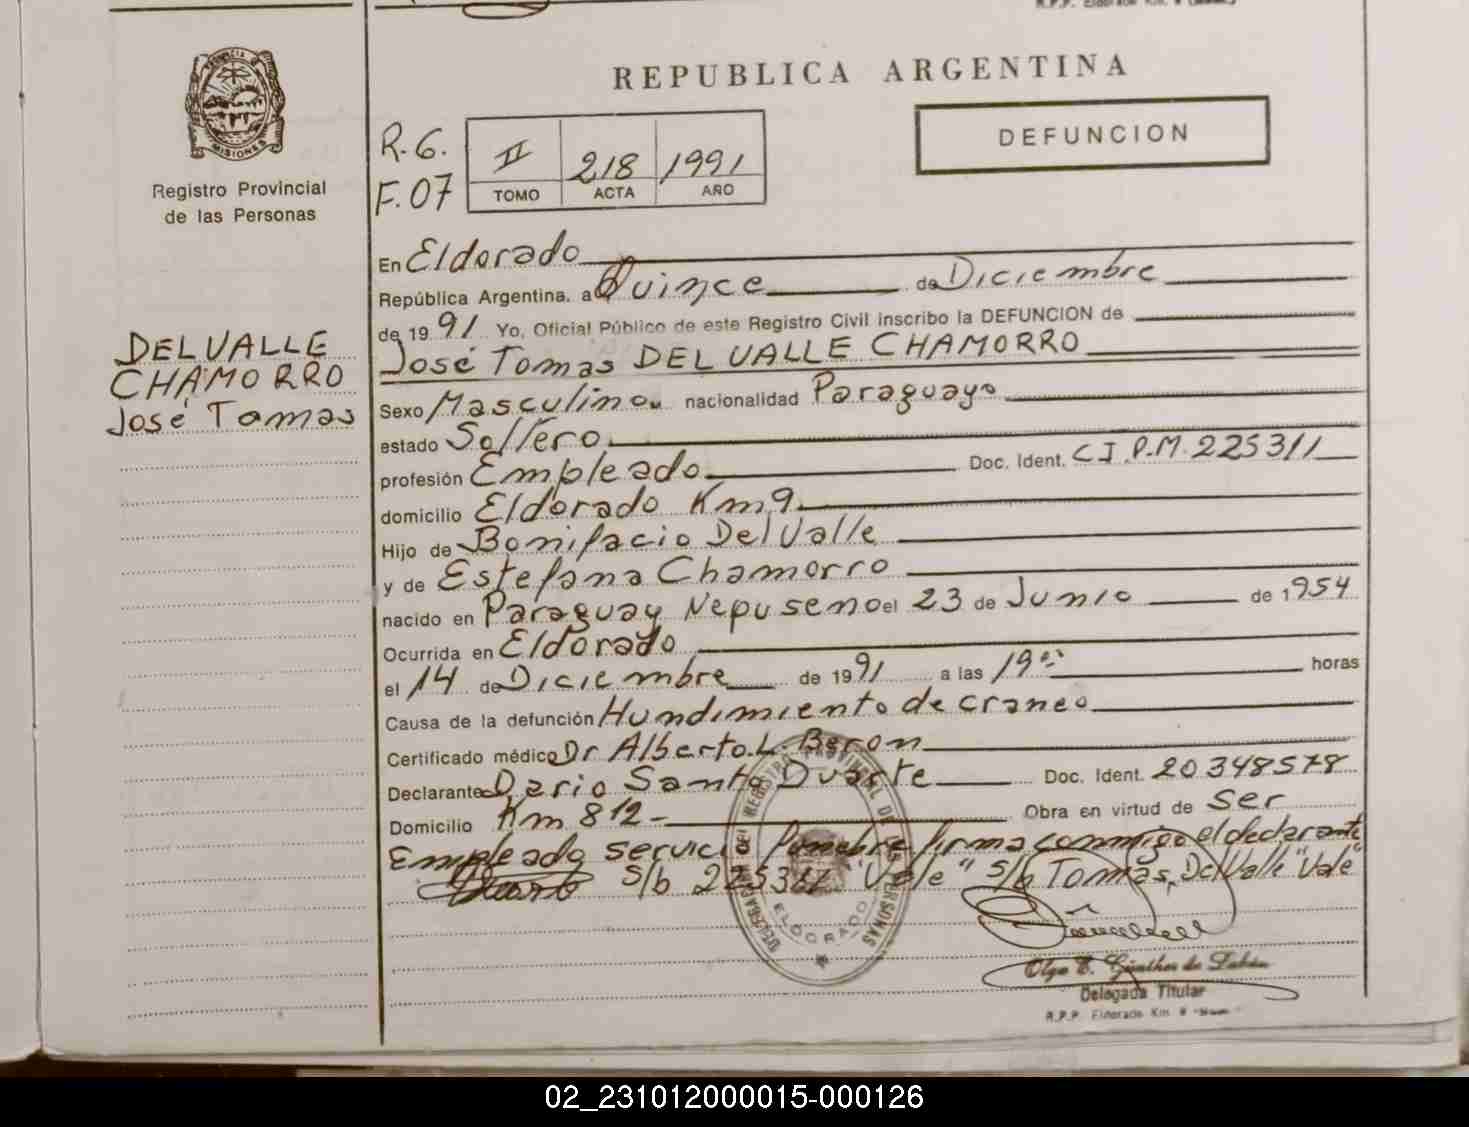 REPUBLICA ARGENTINA
PROVINCIA DE
MISIONES
Registro Provincial
de las Personas
R.G.
F.07
II 218 1991
TOMO ACTA AÑO
DEFUNCION
DELVALLE
CHAMORRO
José Tomas
En Eldorado
República Argentina, a Quince de Diciembre
de 1991 Yo, Oficial Público de este Registro Civil inscribo la DEFUNCION de
José Tomas DELVALLE CHAMORRO
Sexo Masculino nacionalidad Paraguayo
estado Soltero
profesión Empleado Doc. Ident. C.I.P.M. 225311
domicilio Eldorado Km 9
Hijo de Bonifacio DelValle
y de Estefana Chamorro
nacido en Paraguay Nepuseno el 23 de Junio de 1954
Ocurrida en Eldorado
el 14 de Diciembre de 1991 a las 19 horas
Causa de la defunción Hundimiento de craneo
Certificado médico Dr Alberto L. Beron
Declarante Dario Santo Duarte Doc. Ident. 20348578
Domicilio Km 812 - Obra en virtud de ser
Empleado servicio funebre firma conmigo el declarante
s/b "Vale" s/b Tomás, DelValle "Vale"
DELEGACION DEL REGISTRO PROVINCIAL DE LAS PERSONAS
ELDORADO
Olga E. Günther de
Delegada Titular
R.P.P. Eldorado Km. 9
02_231012000015-000126